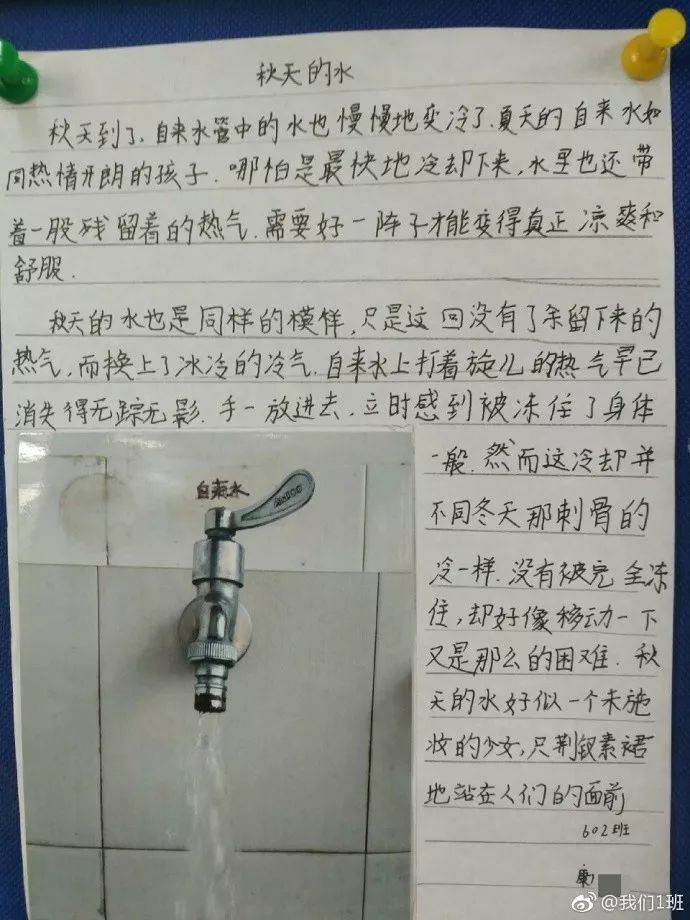 秋天的水
秋天到了、自来水管中的水也慢慢地变冷了.夏天的自来水如
同热情开朗的孩子.哪怕是最快地冷却下来,水里也还带
着一股残留着的热气.需要好一阵子才能变得真正凉爽和
舒服.
秋天的水也是同样的模样,只是这回没有了余留下来的
热气,而换上了冰冷的冷气.自来水上打着旋儿的热气早已
消失得无踪无影.手一放进去,立时感到被冻住了身体
一般.然而这冷却并
不同冬天那刺骨的
冷一样.没有被完全冻
住,却好像移动一下
又是那么的困难.秋
天的水好似一个未施
妆的少女,只荆钗素裙
地站在人们的面前
602班
自来水
@我们1班